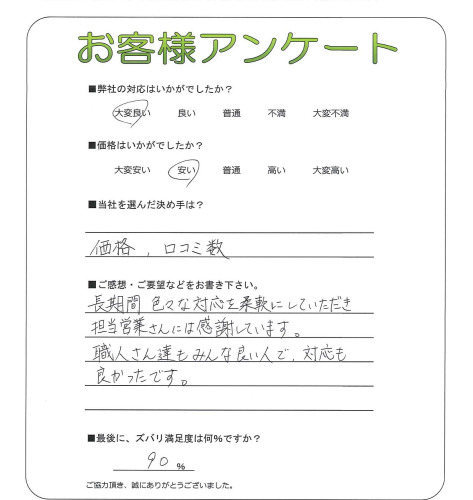 お客様アンケート
■弊社の対応はいかがでしたか？
大変良い 良い 普通 不満 大変不満
■価格はいかがでしたか？
大変安い 安い 普通 高い 大変高い
■当社を選んだ決め手は？
価格、口コミ数
■ご感想・ご要望などをお書き下さい。
長期間 色々な対応を柔軟にしていただき
担当営業さんには感謝しています。
職人さん達もみんな良い人で、対応も
良かったです。
■最後に、ズバリ満足度は何%ですか？
90 %
ご協力頂き、誠にありがとうございました。